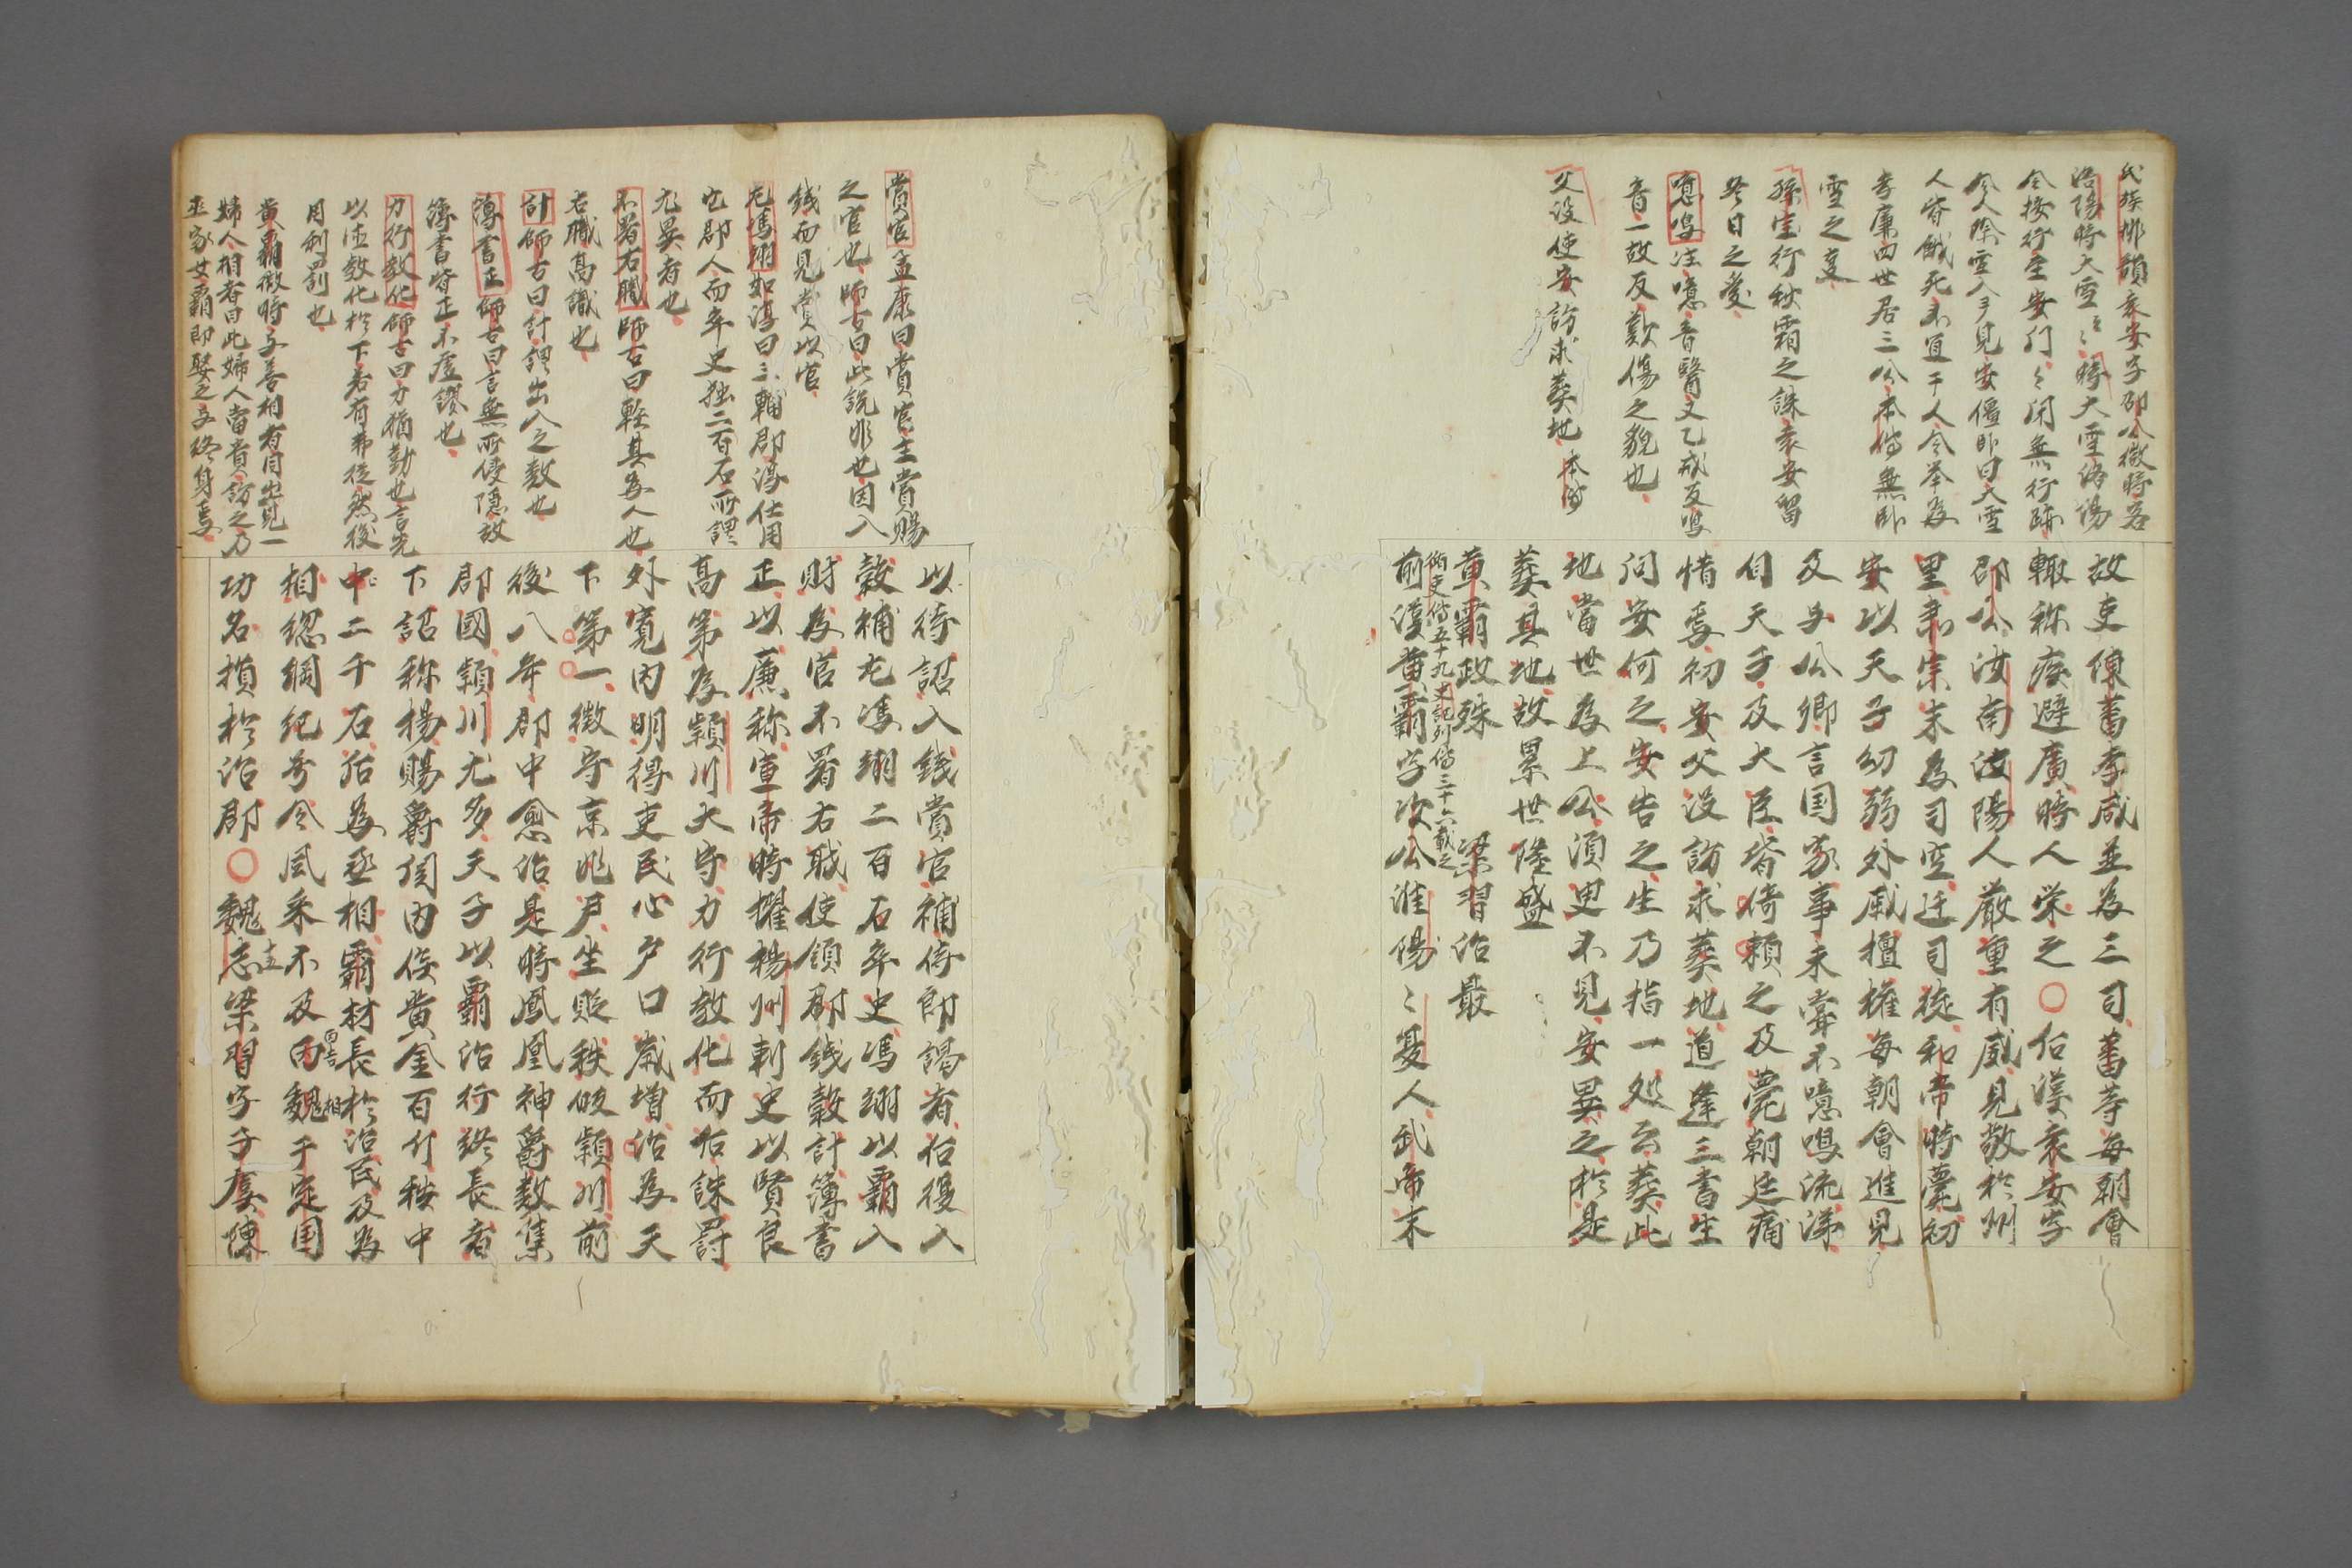 氏族排韻袁安字邵公微時客
洛陽時大雪〻時大雪洛陽
令按行至安门〻閉無行跡
令人除雪入戸見安僵卧曰大雪
人皆餓死不宜干人令举為
孝廉四世居三公本傳無卧
雪之叓
孫宝行秋霜之誅袁安留
冬日之愛
噫嗚注噫音醫又乙戒反嗚
音一故反歎傷之貌也
父没使安訪求葬地 本傳
故吏陳蕃李咸並為三司蕃等每朝會
輙称疾避廣時人栄之〇后漢袁安字
邵公汝南汝陽人嚴重有威見敬於州
里肃宗末為司空迁司徒和帝時薨初
安以天子幼弱外戚擅権每朝會進見
及与公卿言国家事未嘗不噫嗚流涕
自天子及大臣皆倚賴之及薨朝廷痛
惜焉初安父没訪求葬地道逢三書生
问安何之安告之生乃指一処云葬此
地當世為上公須臾不見安異之於是
葬其地故累世隆盛
黄霸政殊 梁習治最
循吏傳五十九史記列傳三十六載之
前漢黄霸字次公淮陽〻夏人武帝末
賞官孟康曰賞官主賞賜
之官也師古曰此説非也因入
銭而見賞以官
左馮翊如淳曰三輔郡得仕用
它郡人而卒史独二百石所謂
尤異者也
不署右職師古曰軽其為人也
右職高職也
計師古曰計謂出入之数也
簿書正師古曰言無所侵隐故
簿書皆正不虚謬也
力行教化師古曰力猶勤也言先
以徳教化於下若有弗従然後
用刑罰也
黄霸微時与善相者同出見一
婦人相者曰此婦人當貴訪之乃
巫家女霸即娶之与終身焉
以待詔入銭賞官補侍郎謁者后復入
穀補左馮翊二百石卒史馮翊以霸入
財為官不署右職使領郡銭穀計簿書
正以廉称宣帝時擢揚州刺史以賢良
高第為頴川大守力行教化而后誅罰
外寛内明得吏民心戸口歳増治為天
下第一徴守京兆尹坐貶秩皈頴川前
後八年郡中愈治是時鳳凰神爵数集
郡國頴川尤多天子以霸治行終長者
下詔称揚賜爵関内侯黄金百斤秩中
中二千石后為丞相霸材長於治民及為
相総綱紀号令風采不及丙吉魏相于定国
功名損於治郡〇魏志十五梁習字子虞陳